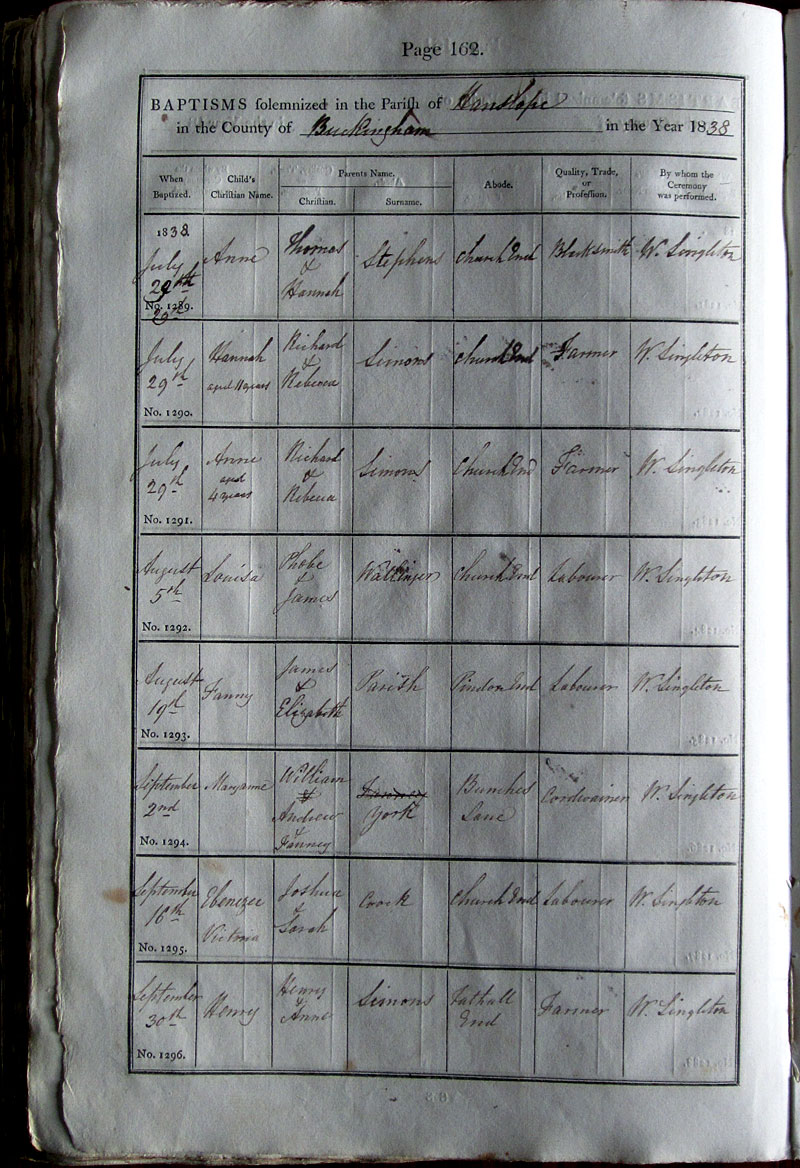 Page 162.
BAPTISMS solemnized in the Parish of Hanslope
in the County of Buckingham in the Year 1838
When Baptized. Child's Christian Name. Parents Name. Christian. Surname. Abode. Quality, Trade, or Profession. By whom the Ceremony was performed.
1838
July 29th No. 1289. Anne Thomas & Hannah Stephens Church End Blacksmith W. Singleton
July 29th No. 1290. Hannah aged 11 years Richard & Rebecca Simons Church End Farmer W. Singleton
July 29th No. 1291. Anne aged 4 years Richard & Rebecca Simons Church End Farmer W. Singleton
August 5th No. 1292. Louisa Phobe & James Watlinger Church End Labourer W. Singleton
August 19th No. 1293. Fanny James & Elizabeth Parish Pindon End Labourer W. Singleton
September 2nd No. 1294. Maryanne William & Andrew & Fanney York Bunches Lane Cordwainer W. Singleton
September 16th No. 1295. Ebenezer Victoria Joshua & Sarah Cook Church End Labourer W. Singleton
September 30th No. 1296. Henry Henry & Anne Simons Tathall End Farmer W. Singleton